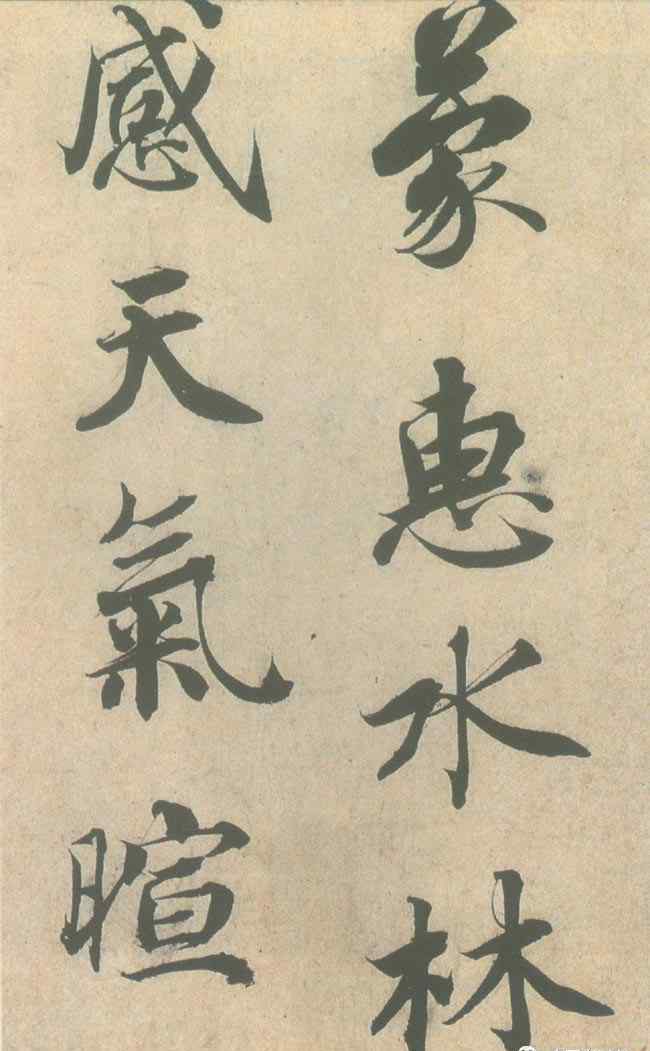 蒙惠水林
感天氣暄